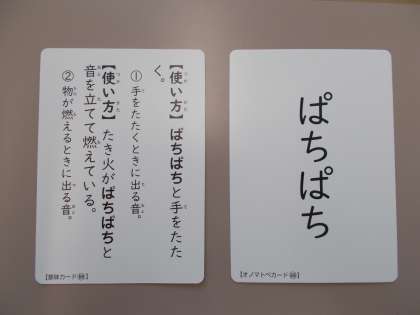 【使い方】ぱちぱちと手をたた
く。
① 手をたたくときに出る音。
【使い方】たき火がぱちぱちと
音を立てて燃えている。
② 物が燃えるときに出る音。
【意味カード
ぱちぱち
【オノマトペカード